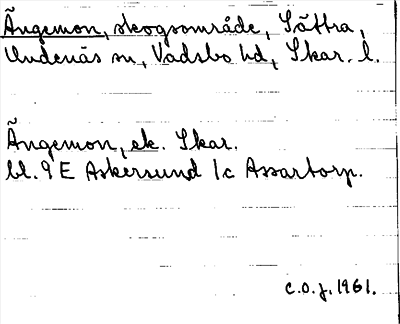 Ängemon, skogsområde, Sättra,
Undenäs sn, Vadsbo hd, Skar. l.
Ängemon, ek. Skar.
bl. 9 E Askersund 1c Assartorp.
C.O.J. 1961.